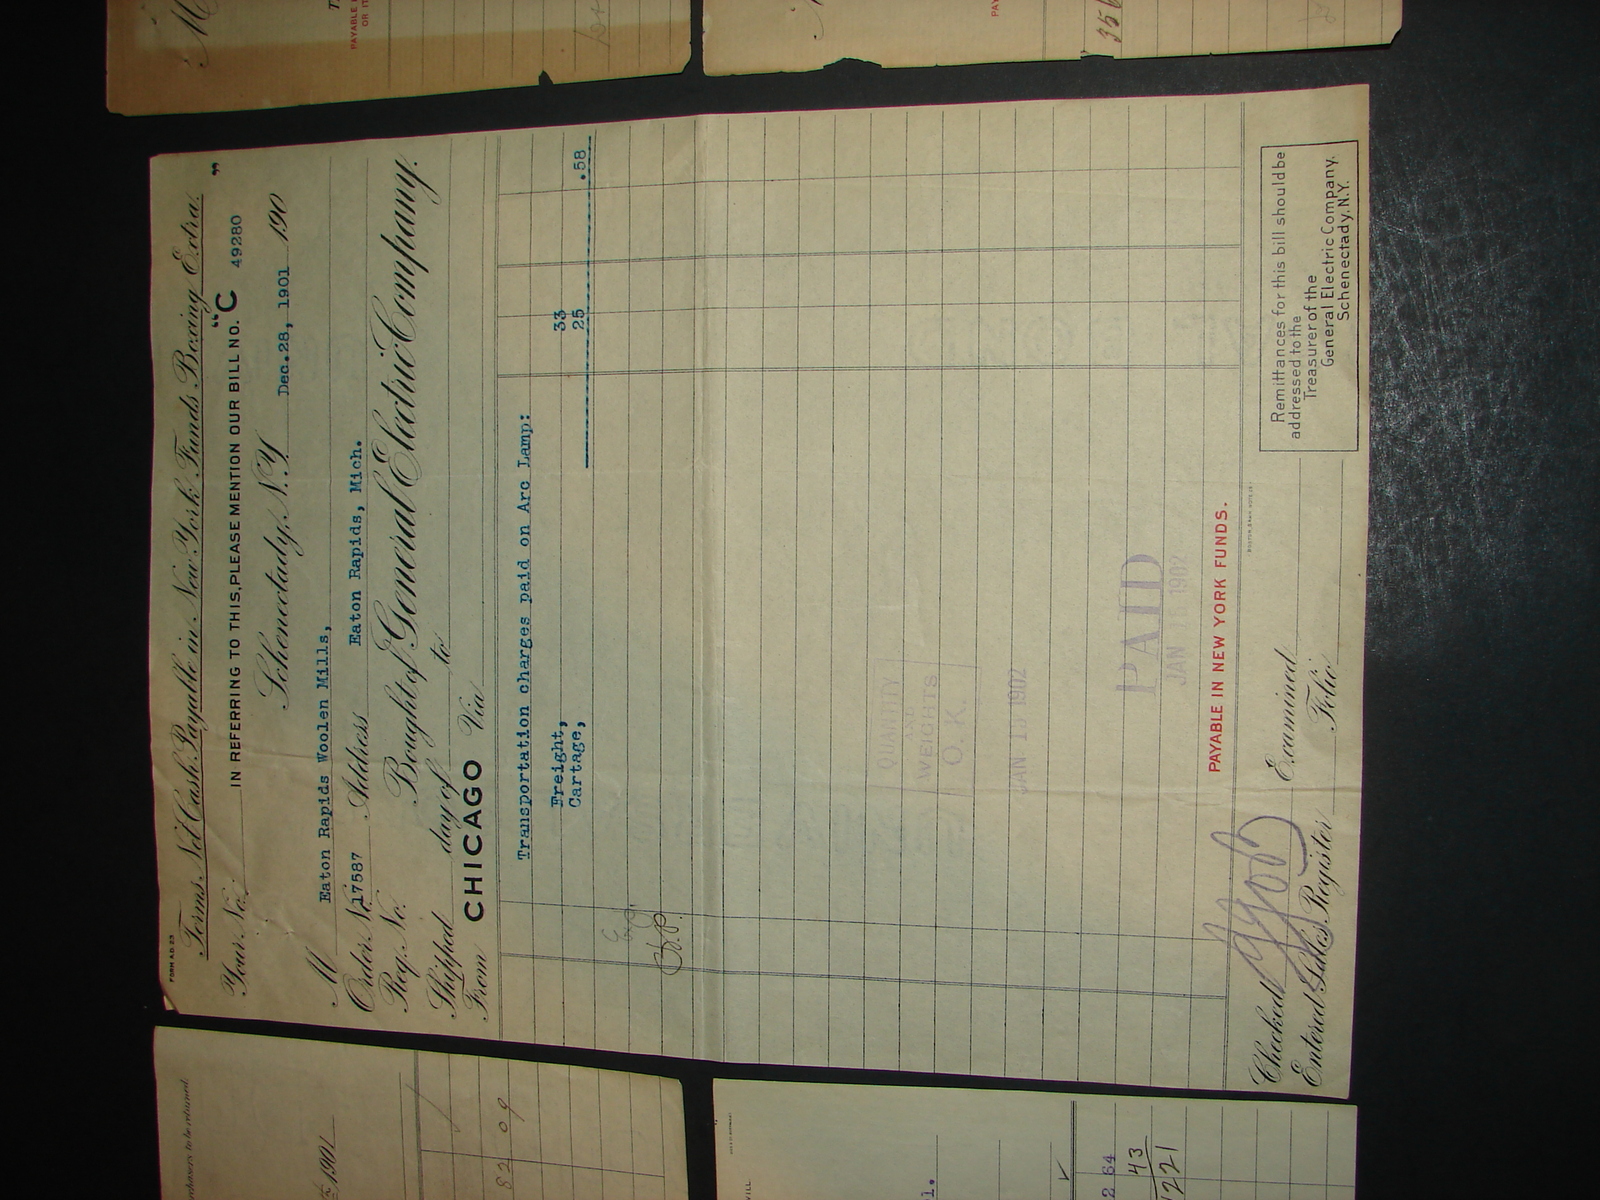 FORM A.D. 23
Terms Net Cash. Payable in New York Funds Boxing Extra.
Your No. IN REFERRING TO THIS, PLEASE MENTION OUR BILL NO. "C 49280 "
Schenectady, N.Y. Dec.28, 1901 190
M Eaton Rapids Woolen Mills,
Order No. 17587 Address Eaton Rapids, Mich.
Req. No. Bought of General Electric Company.
Shipped day of to
From CHICAGO Via
Transportation charges paid on Arc Lamp:
Freight, 33
Cartage, 25 .58
QUANTITY
AND
WEIGHTS
O.K.
JAN 13 1902
PAID
JAN 15 1902
PAYABLE IN NEW YORK FUNDS.
Checked Examined
Entered Sales Register Folio
Remittances for this bill should be
addressed to the
Treasurer of the
General Electric Company.
Schenectady, N.Y.
1901
82 09
2 64
43
221
356
M
PAYABLE
OR IT
PAY